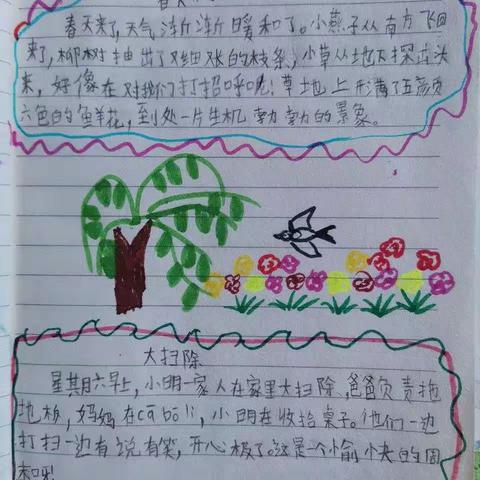 春天来了,天气渐渐暖和了。小燕子从南方飞回
来了,柳树抽出了又细又长的枝条,小草从地下探出头
来,好像在对我们打招呼呢!草地上形满了五颜
六色的鲜花,到处一片生机勃勃的景象。
大扫除
星其月六早上,小明一家人在家里大扫除,爸爸负责拖
地板,妈妈在cā bō li,小明在收拾桌子。他们一边
打扫一边有说有笑,开心极了。这是一个愉快的周
末呀!